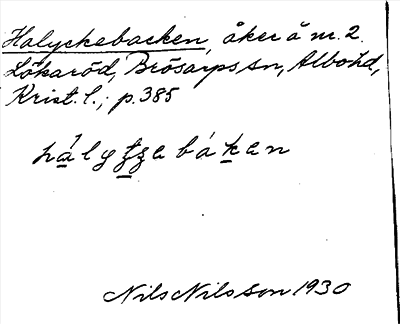 Halyckebacken, åker å nr. 2.
Lökaröd, Brösarps sn, Albohd,
Krist. l.; p. 385
Nils Nilsson 1930